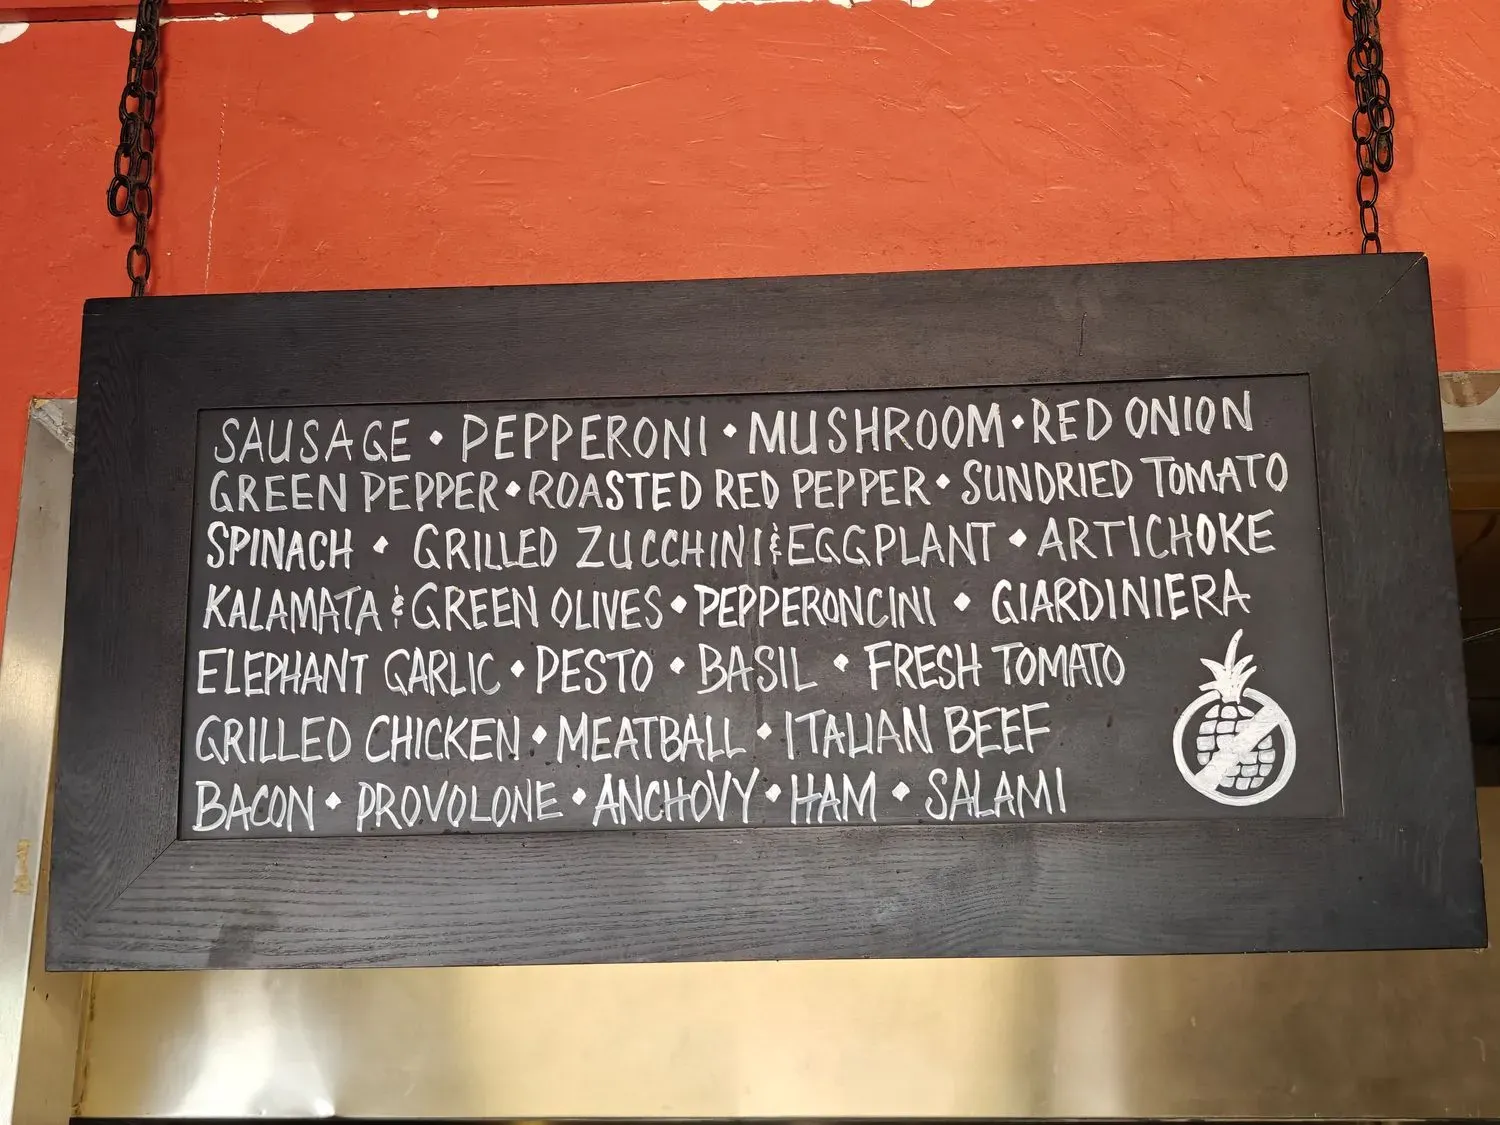 SAUSAGE • PEPPERONI • MUSHROOM • RED ONION
GREEN PEPPER • ROASTED RED PEPPER • SUNDRIED TOMATO
SPINACH • GRILLED ZUCCHINI & EGGPLANT • ARTICHOKE
KALAMATA & GREEN OLIVES • PEPPERONCINI • GIARDINIERA
ELEPHANT GARLIC • PESTO • BASIL • FRESH TOMATO
GRILLED CHICKEN • MEATBALL • ITALIAN BEEF
BACON • PROVOLONE • ANCHOVY • HAM • SALAMI